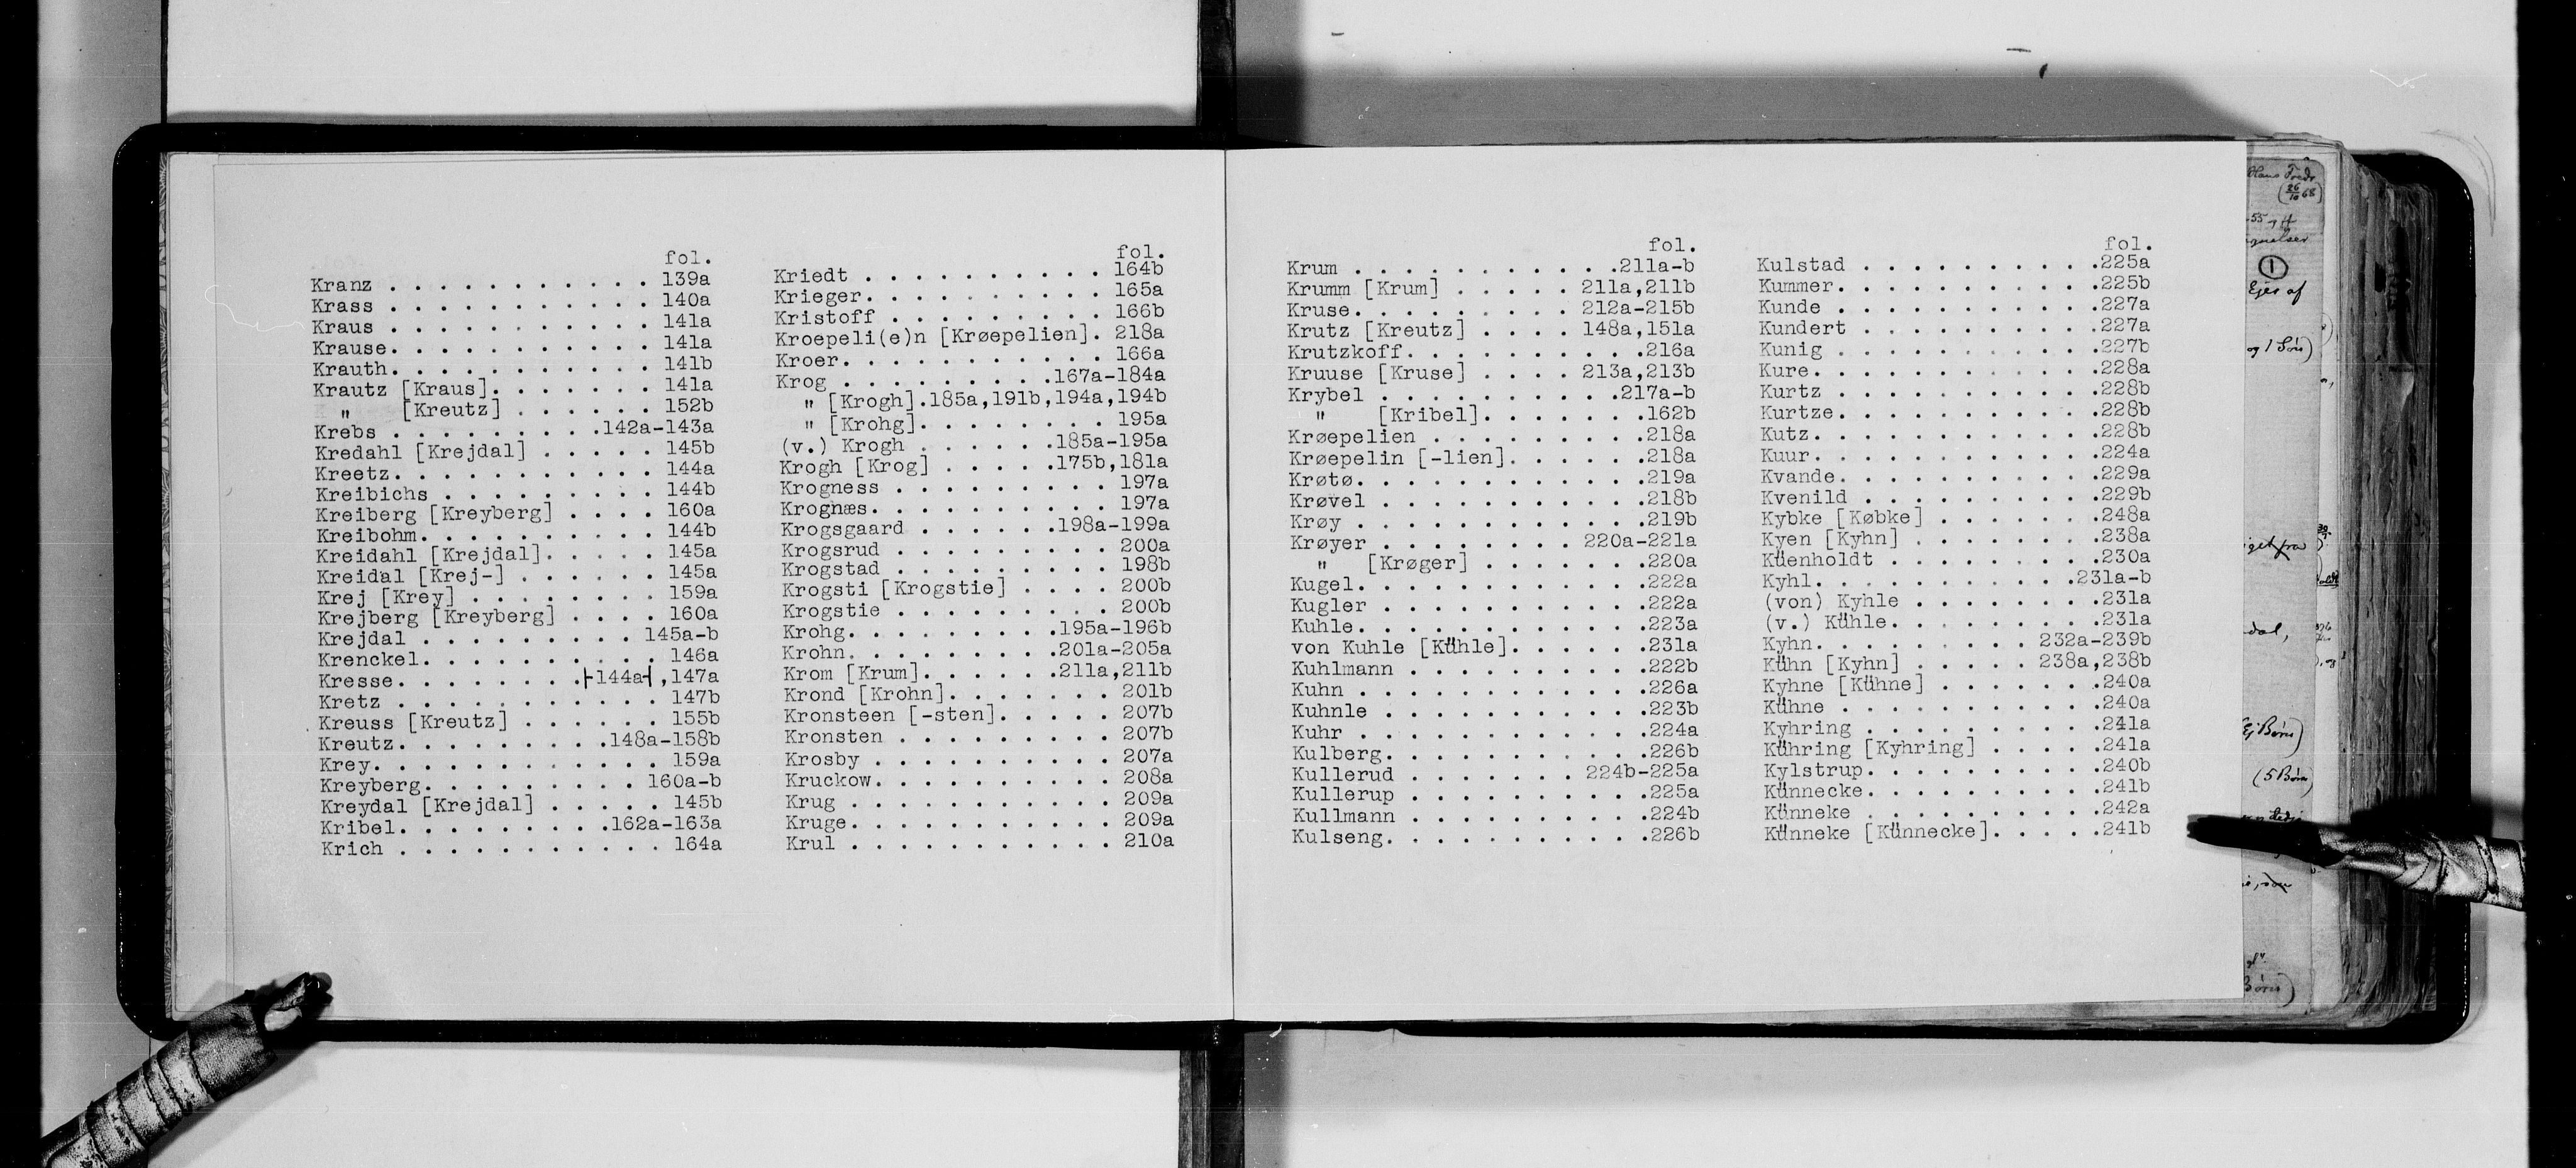 fol.
Kranz . . . . . . . . . . . 139a
Krass . . . . . . . . . . . 140a
Kraus . . . . . . . . . . . 141a
Krause. . . . . . . . . . . 141a
Krauth. . . . . . . . . . . 141b
Krautz [Kraus]. . . . . . . 141a
" [Kreutz] . . . . . . 152b
Krebs . . . . . . . . .142a-143a
Kredahl [Krejdal] . . . . . 145b
Kreetz. . . . . . . . . . . 144a
Kreibichs . . . . . . . . . 144b
Kreiberg [Kreyberg] . . . . 160a
Kreibohm. . . . . . . . . . 144b
Kreidahl [Krejdal]. . . . . 145a
Kreidal [Krej-] . . . . . . 145a
Krej [Krey] . . . . . . . . 159a
Krejberg [Kreyberg] . . . . 160a
Krejdal . . . . . . . . . 145a-b
Krenckel. . . . . . . . . . 146a
Kresse. . . . . . . .⊦144a⊣,147a
Kretz . . . . . . . . . . . 147b
Kreuss [Kreutz] . . . . . . 155b
Kreutz. . . . . . . . .148a-158b
Krey. . . . . . . . . . . . 159a
Kreyberg. . . . . . . . . 160a-b
Kreydal [Krejdal] . . . . . 145b
Kribel. . . . . . . . .162a-163a
Krich . . . . . . . . . . . 164a
fol.
Kriedt . . . . . . . . . . 164b
Krieger. . . . . . . . . . 165a
Kristoff . . . . . . . . . 166b
Kroepeli(e)n [Krøepelien]. 218a
Kroer. . . . . . . . . . . 166a
Krog . . . . . . . . .167a-184a
" [Krogh].185a,191b,194a,194b
" [Krohg]. . . . . . . . 195a
(v.) Krogh . . . . . .185a-195a
Krogh [Krog] . . . . .175b,181a
Krogness . . . . . . . . . 197a
Krognæs. . . . . . . . . . 197a
Krogsgaard . . . . . .198a-199a
Krogsrud . . . . . . . . . 200a
Krogstad . . . . . . . . . 198b
Krogsti [Krogstie] . . . . 200b
Krogstie . . . . . . . . . 200b
Krohg. . . . . . . . .195a-196b
Krohn. . . . . . . . .201a-205a
Krom [Krum]. . . . . .211a,211b
Krond [Krohn]. . . . . . . 201b
Kronsteen [-sten]. . . . . 207b
Kronsten . . . . . . . . . 207b
Krosby . . . . . . . . . . 207a
Kruckow. . . . . . . . . . 208a
Krug . . . . . . . . . . . 209a
Kruge. . . . . . . . . . . 209a
Krul . . . . . . . . . . . 210a
fol.
Krum . . . . . . . . . . .211a-b
Krumm [Krum] . . . . . 211a,211b
Kruse. . . . . . . . . 212a-215b
Krutz [Kreutz] . . . . 148a,151a
Krutzkoff. . . . . . . . . .216a
Kruuse [Kruse] . . . . 213a,213b
Krybel . . . . . . . . . .217a-b
" [Kribel]. . . . . . .162b
Krøepelien . . . . . . . . .218a
Krøepelin [-lien]. . . . . .218a
Krøtø. . . . . . . . . . . .219a
Krøvel . . . . . . . . . . .218b
Krøy . . . . . . . . . . . .219b
Krøyer . . . . . . . . 220a-221a
" [Krøger] . . . . . . .220a
Kugel. . . . . . . . . . . .222a
Kugler . . . . . . . . . . .222a
Kuhle. . . . . . . . . . . .223a
von Kuhle [Kühle]. . . . . .231a
Kuhlmann . . . . . . . . . .222b
Kuhn . . . . . . . . . . . .226a
Kuhnle . . . . . . . . . . .223b
Kuhr . . . . . . . . . . . .224a
Kulberg. . . . . . . . . . .226b
Kullerud . . . . . . . 224b-225a
Kullerup . . . . . . . . . .225a
Kullmann . . . . . . . . . .224b
Kulseng. . . . . . . . . . .226b
fol.
Kulstad . . . . . . . . . .225a
Kummer. . . . . . . . . . .225b
Kunde . . . . . . . . . . .227a
Kundert . . . . . . . . . .227a
Kunig . . . . . . . . . . .227b
Kure. . . . . . . . . . . .228a
Kurtz . . . . . . . . . . .228b
Kurtze. . . . . . . . . . .228b
Kutz. . . . . . . . . . . .228b
Kuur. . . . . . . . . . . .224a
Kvande. . . . . . . . . . .229a
Kvenild . . . . . . . . . .229b
Kybke [Købke] . . . . . . .248a
Kyen [Kyhn] . . . . . . . .238a
Küenholdt . . . . . . . . .230a
Kyhl. . . . . . . . . . .231a-b
(von) Kyhle . . . . . . . .231a
(v.) Kühle. . . . . . . . .231a
Kyhn. . . . . . . . . 232a-239b
Kühn [Kyhn] . . . . . 238a,238b
Kyhne [Kühne] . . . . . . .240a
Kühne . . . . . . . . . . .240a
Kyhring . . . . . . . . . .241a
Kühring [Kyhring] . . . . .241a
Kylstrup. . . . . . . . . .240b
Künnecke. . . . . . . . . .241b
Künneke . . . . . . . . . .242a
Künneke [Künnecke]. . . . .241b
Hans Fredr
(26/10 68)
1
Ejer af
og 1 Søn)
dal,
Ej Børn)
(5 Børn
Børn)